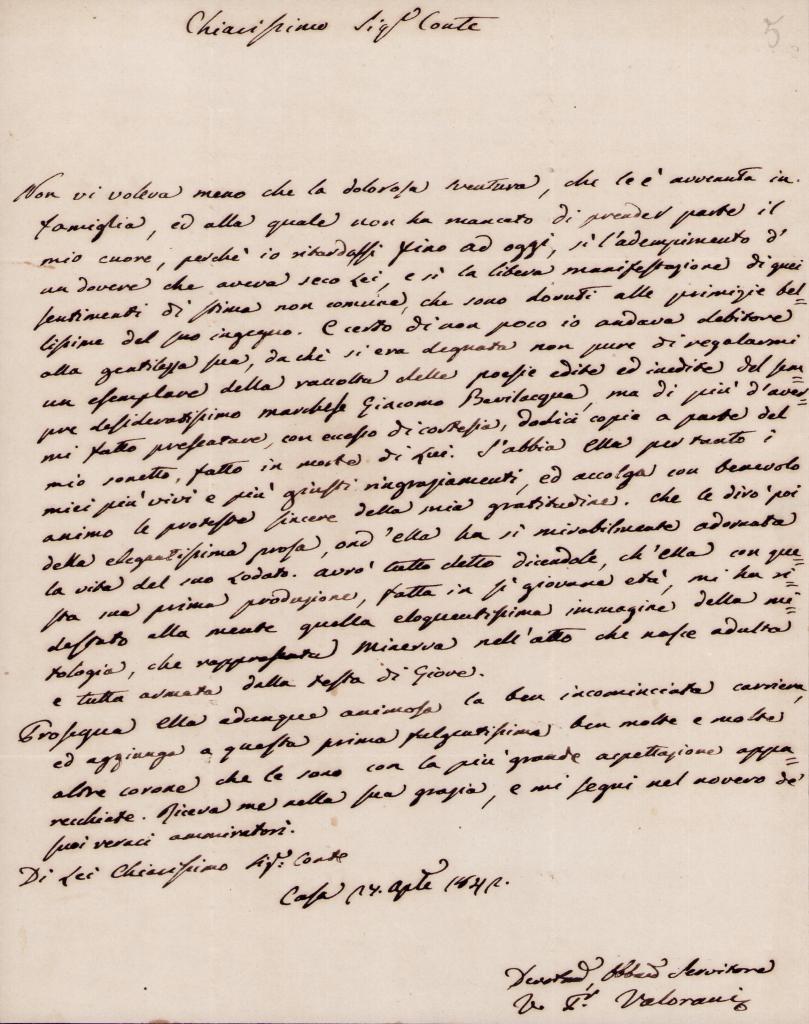 5
Chiarissimo Sigr Conte
Non vi voleva meno che la dolorosa sventura, che le è avvenuta in
famiglia, ed alla quale non ha mancato di prender parte il
mio cuore, perchè io ritardassi fino ad oggi, sì l'adempimento d'
un dovere che aveva seco Lei, e sì la libera manifestazione di quei
sentimenti di stima non comune, che sono dovuti alle primizie bel=
lissime del suo ingegno. E certo di non poco io andava debitore
alla gentilezza sua, da chè si era degnata non pure di regalarmi
un esemplare della raccolta delle poesie edite ed inedite del sem=
pre desideratissimo marchese Giacomo Bevilacqua, ma di più d'aver=
mi fatto presentare, con eccesso di cortesia, dodici copie a parte del
mio sonetto, fatto in morte di Lui. S'abbia Ella per tanto i
miei più vivi e più giusti ringraziamenti, ed accolga con benevolo
animo le proteste sincere della mia gratitudine. Che le dirò poi
della elegantissima prosa, ond'ella ha sì mirabilmente adornata
la vita del suo Lodato. Avrò tutto detto dicendole, ch'Ella con que=
sta sua prima produzione, fatta in sì giovane età, mi ha ri=
destato alla mente quella eloquentissima immagine della mi=
tologia, che rappresenta Minerva nell'atto che nasce adulta
e tutta armata dalla testa di Giove.
Prosegua Ella adunque animosa la ben incominciata carriera,
ed aggiunga a questa prima fulgentissima ben molte e molte
altre corone che le sono con la più grande aspettazione appa=
recchiate. Riceva me nella sua grazia, e mi segni nel novero de'
suoi veraci ammiratori.
Di Lei Chiarissimo Sigr Conte
Casa 24. Aple 1842.
Devotmo Obbmo Servitore
V. Valorani